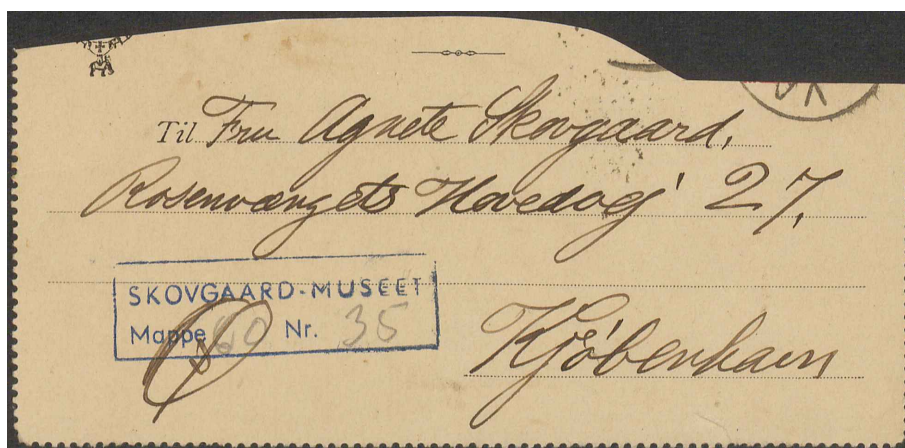 Til Fru Agnete Skovgaard,
Rosenvængets Hovedvej 27,
SKOVGAARD-MUSEET
Mappe 60 Nr. 35
Kjöbenhavn